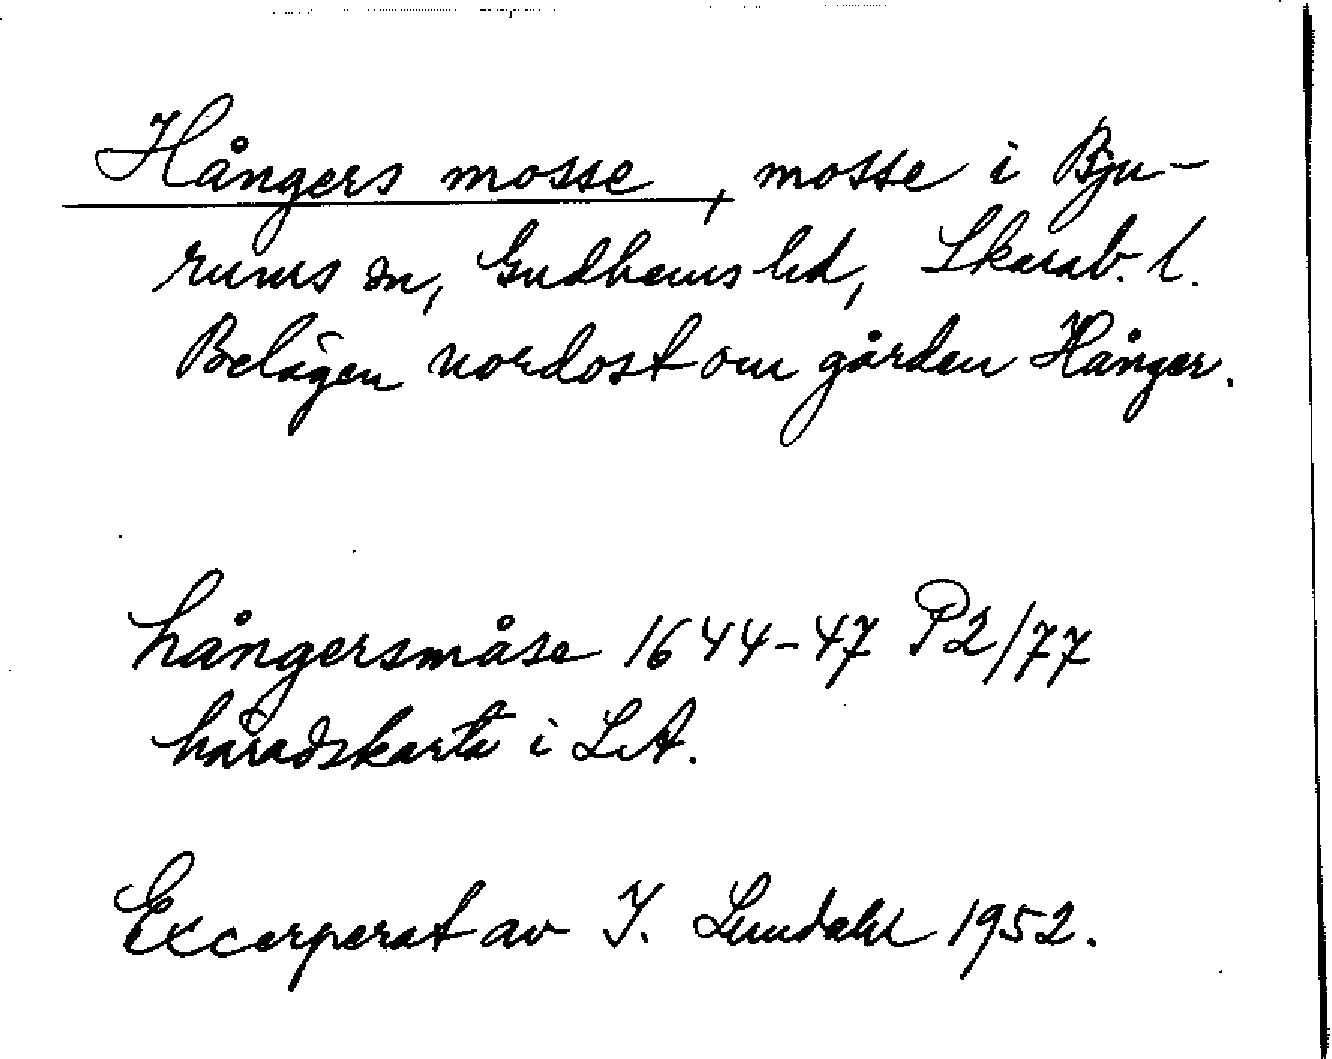 Hångers mosse, mosse i Bju-
rums sn, Gudhems hd, Skarab. l.
Belägen nordost om gården Hånger.
hångersmåse 1644-47 P2/77
häradskarta i LA.
Excerperat av I. Lundahl 1952.